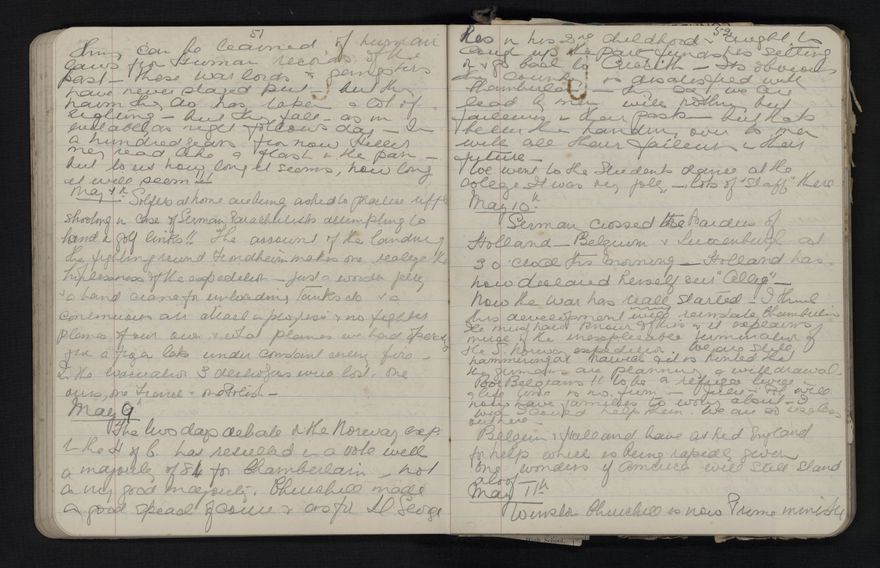 51
Thing can be learned of human
laws from human records of the
past — These war lords & gangsters
have never stayed put — but the
harm they do has taken a lot of
righting — but they fall — as in
evitable as night follows day — In
a hundred years from now Hitler
may read like a flash in the pan —
but to us how long it seems, how long
it will seem!!
May 7th: Soldiers at home are being asked to practice rifle
shooting in case of German Parachutists attempting to
land on golf links!! The account of the landing
& the fighting round Trondheim makes one realize the
hopelessness of the expedition — just a wooden jetty
& a hand crane for unloading tanks etc & a
continuous air attack in progress & no fighter
planes of our own & what planes we had operating
from a frozen lake under constant enemy fire —
In the evacuation 3 destroyers were lost — one
ours, one French & one Polish —
May 9
The two days debate on the Norway exp.
in the H of C. has resulted in a vote with
a majority of 81 for Chamberlain — not
a very good majority. Churchill made
a good speech of course & as for Ll George
52
he's in his 2nd childhood & ought to
The country is dissatisfied with
Chamberlain — they say we are
lead by men with nothing but
failures in their past — but that's
better than handing over to men
with all their failures in their
future —
We went to the Students dance at the
College. It was very jolly — lots of "Staff" there
May 10th
German crossed the borders of
Holland — Belgium & Luxemburgh at
3 o'clock this morning — Holland has
now declared herself our "Ally" —
Now the War has really started — I think
this development will reinstate Chamberlain
He must have known of this & it explains
much of the inexplicable termination of
the S. Norway expedition. We are still
hammering at Narvik & it is hinted that
the Germans are planning a withdrawal.
Poor Belgians!! to be a refugee twice in
a life time is no fun —
now have families to worry about — I
wish I could help them. We are so useless
out here —
Belgium & Holland have asked England
for help which is being rapidly given
one wonders if America will still stand
aloof
May 11th
Winston Churchill is now Prime minister